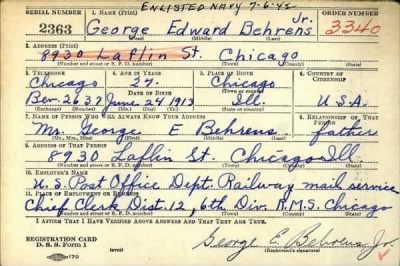 ENLISTED NAVY 7-6-42
SERIAL NUMBER 1. NAME (Print) ORDER NUMBER
2363 George Edward Behrens Jr. 3340
(First) (Middle) (Last)
2. ADDRESS (Print)
8930 Laflin St. Chicago
(Number and street or R. F. D. number) (Town) (County) (State)
3. TELEPHONE 4. AGE IN YEARS 5. PLACE OF BIRTH 6. COUNTRY OF CITIZENSHIP
Chicago 27. Chicago
DATE OF BIRTH
Bev. 2637 June 24 1913 Ill. U.S.A.
(Exchange) (Number) (Mo.) (Day) (Yr.) (State or country)
7. NAME OF PERSON WHO WILL ALWAYS KNOW YOUR ADDRESS 8. RELATIONSHIP OF THAT PERSON
Mr. George E Behrens father
(Mr., Mrs., Miss) (First) (Middle) (Last)
9. ADDRESS OF THAT PERSON
8930 Laflin St. Chicago Ill.
(Number and street or R. F. D. number) (Town) (County) (State)
10. EMPLOYER'S NAME
U.S. Post Office Dept. Railway mail service
11. PLACE OF EMPLOYMENT OR BUSINESS
Chief Clerk Dist. 12, 6th Div. R.M.S. Chicago
(Number and street or R. F. D. number) (Town) (County) (State)
I AFFIRM THAT I HAVE VERIFIED ABOVE ANSWERS AND THAT THEY ARE TRUE.
REGISTRATION CARD
D. S. S. Form 1
George E. Behrens Jr.
(Registrant's signature)